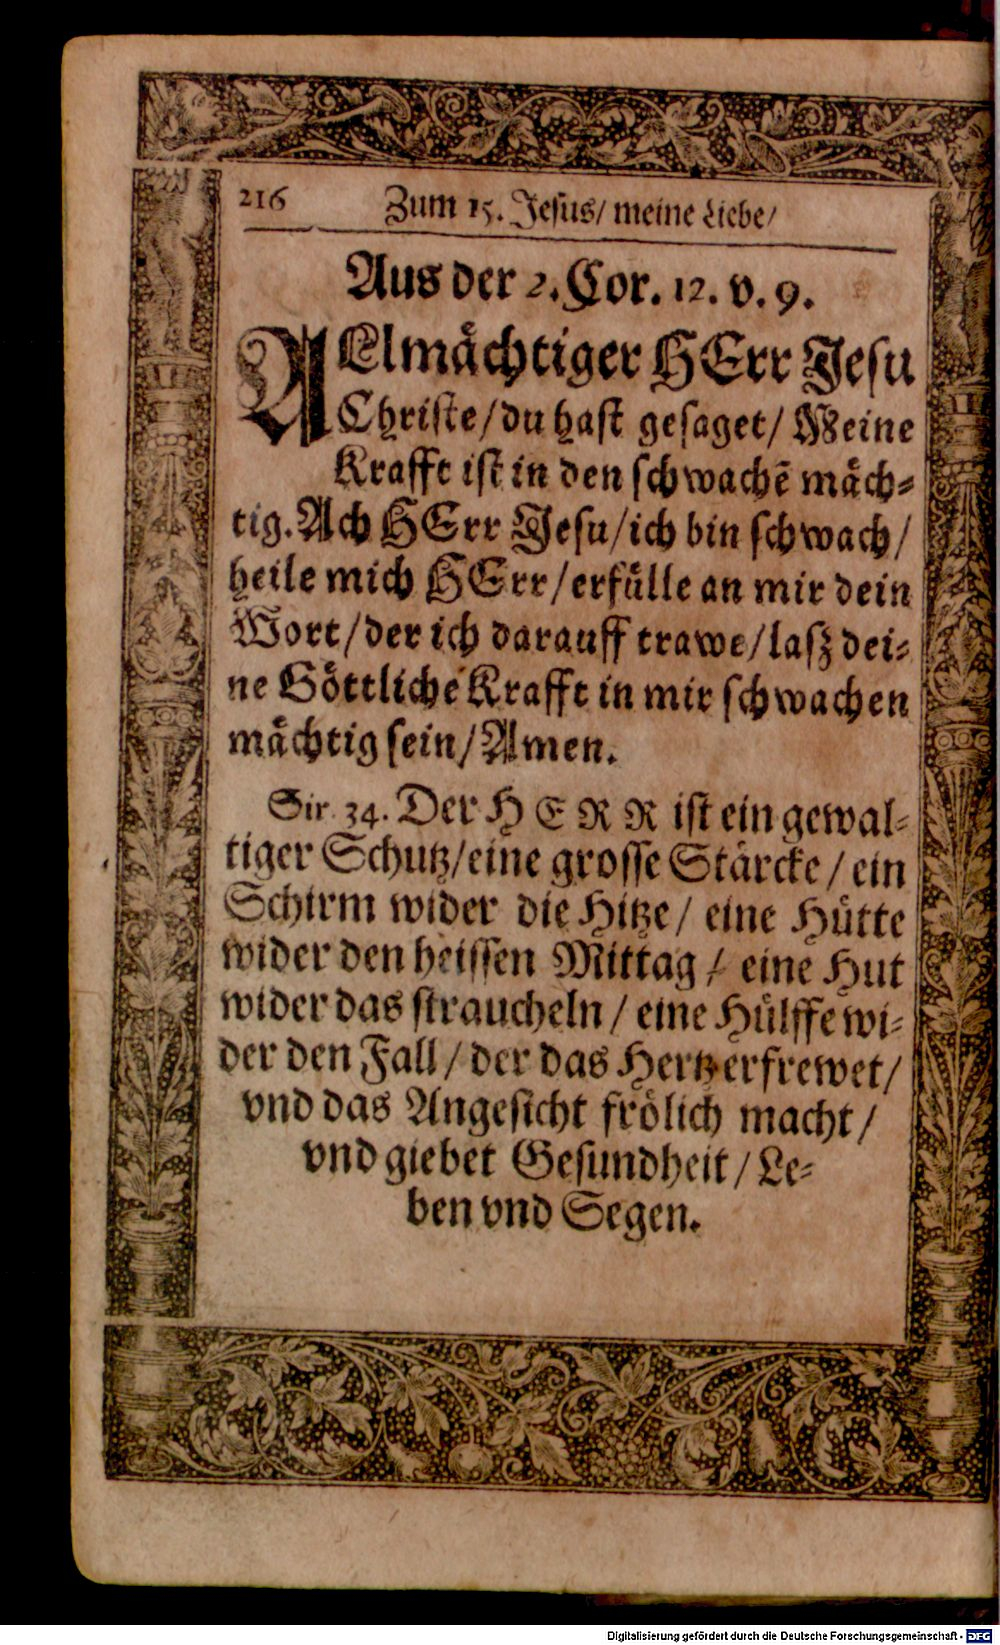 216 Zum 15. Jesus/ meine Liebe/
Aus der 2. Cor. 12. v. 9.
ALlmächtiger HErr Jesu
Christe/ du hast gesaget/ Meine
Krafft ist in den schwachē mäch-
tig. Ach HErr Jesu/ ich bin schwach/
heile mich HErr/ erfülle an mir dein
Wort/ der ich darauff trawe/ lasz dei-
ne Göttliche Krafft in mir schwachen
mächtig sein/ Amen.
Sir. 34. Der HERR ist ein gewal-
tiger Schutz/ eine grosse Stärcke/ ein
Schirm wider die Hitze/ eine Hütte
wider den heissen Mittag/ eine Hut
wider das straucheln/ eine Hülffe wi-
der den Fall/ der das Hertz erfrewet/
vnd das Angesicht frölich macht/
vnd giebet Gesundheit/ Le-
ben vnd Segen.
Digitalisierung gefördert durch die Deutsche Forschungsgemeinschaft - DFG